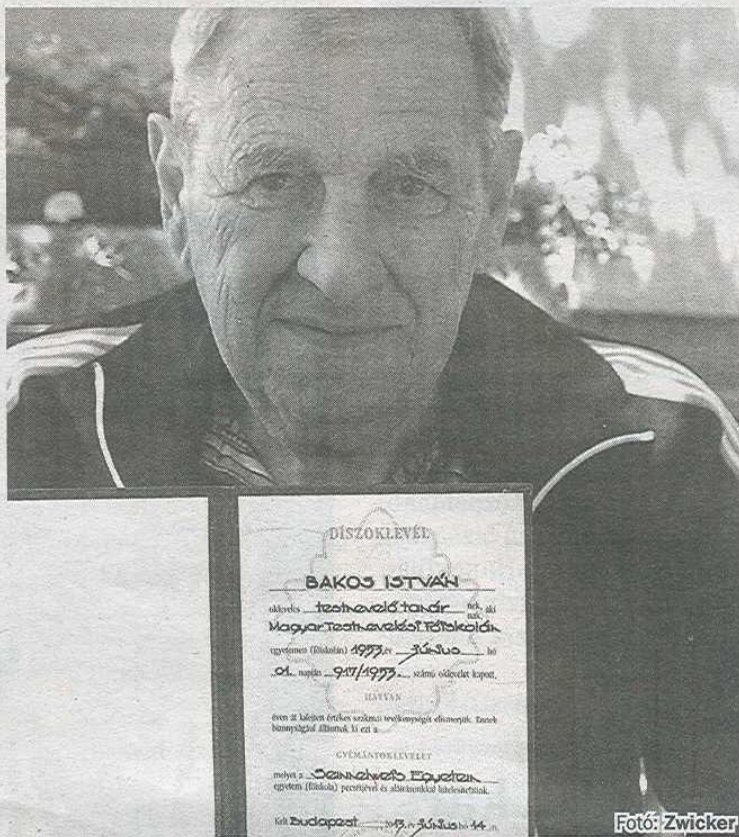 DÍSZOKLEVÉL
BAKOS ISTVÁN
okleveles testnevelő tanár nek, aki
nak,
Magyar Testnevelési Főiskolán
egyetemen (főiskolán) 1953. év június hó
01. napján 917/1953. számú oklevelet kapott,
HATVAN
éven át kifejtett értékes szakmai tevékenységét elismerjük. Ennek
bizonyságául állítottuk ki ezt a
GYÉMÁNTOKLEVELET
melyet a Semmelweis Egyetem
egyetem (főiskola) pecsétjével és aláírásunkkal hitelesítettünk.
Kelt Budapest, 2013. év június hó 14 .n.
Fotó: Zwicker